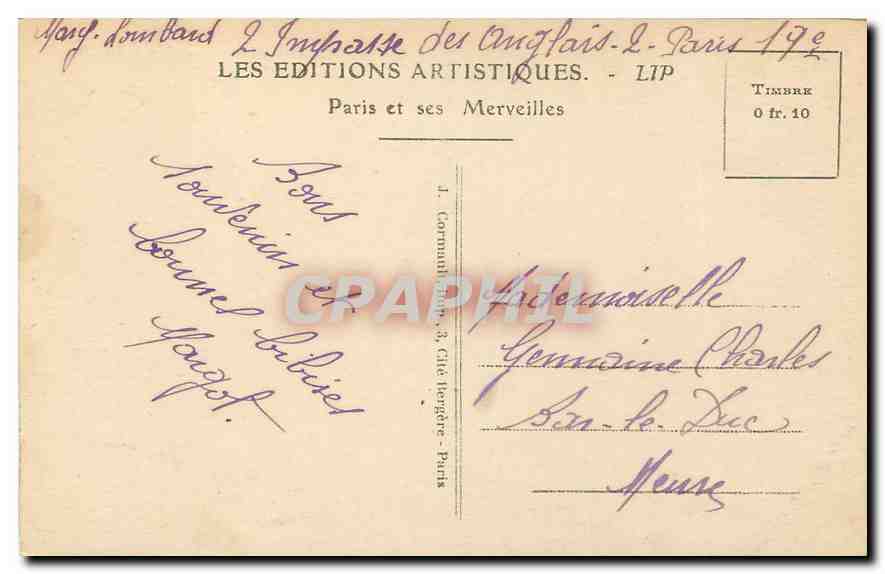 Marg. Lombard 2 Impasse des Anglais - 2 - Paris 19e
LES EDITIONS ARTISTIQUES. - LIP
Paris et ses Merveilles
TIMBRE
0 fr. 10
Bons
souvenirs et
bonnes bibises
Margot.
J. Cormault, Imp., 3, Cité Bergère - Paris
Mademoiselle
Germaine Charles
Bar-le-Duc
Meuse
CPAPHIL